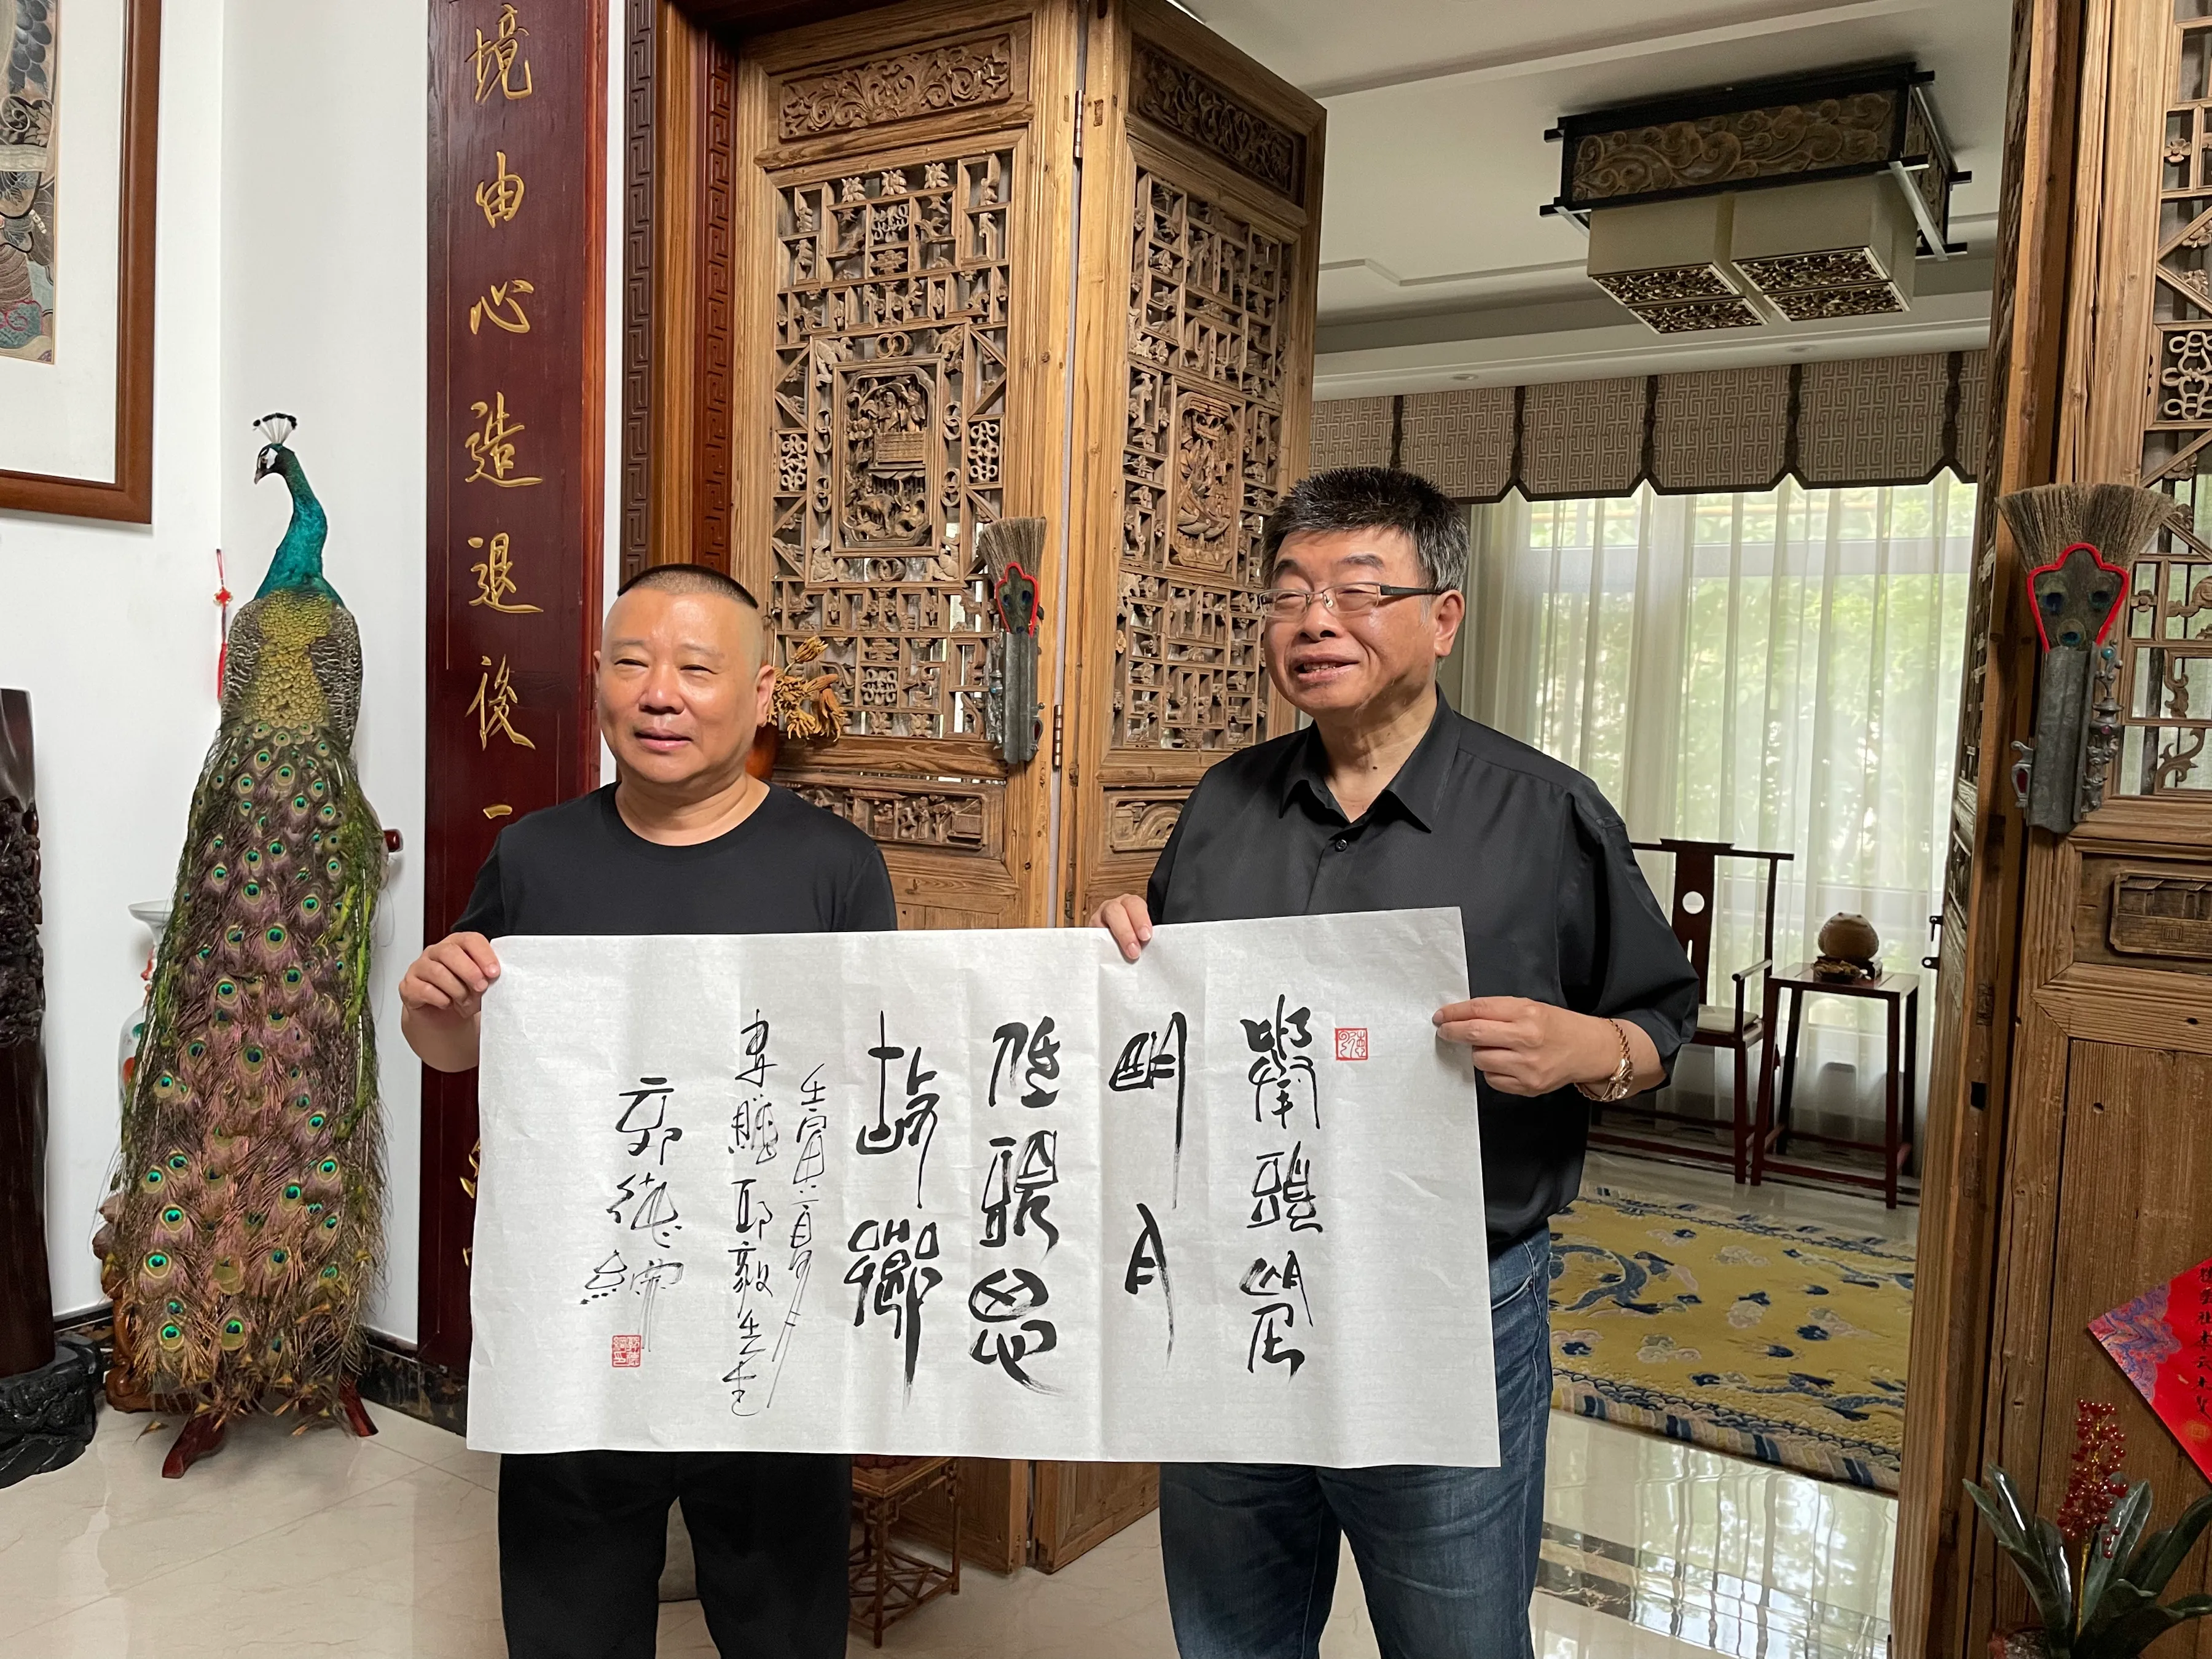 境由心造退後一
舉頭望
明月
低頭思
故鄉
壬寅
書贈邱毅先生
郭德綱